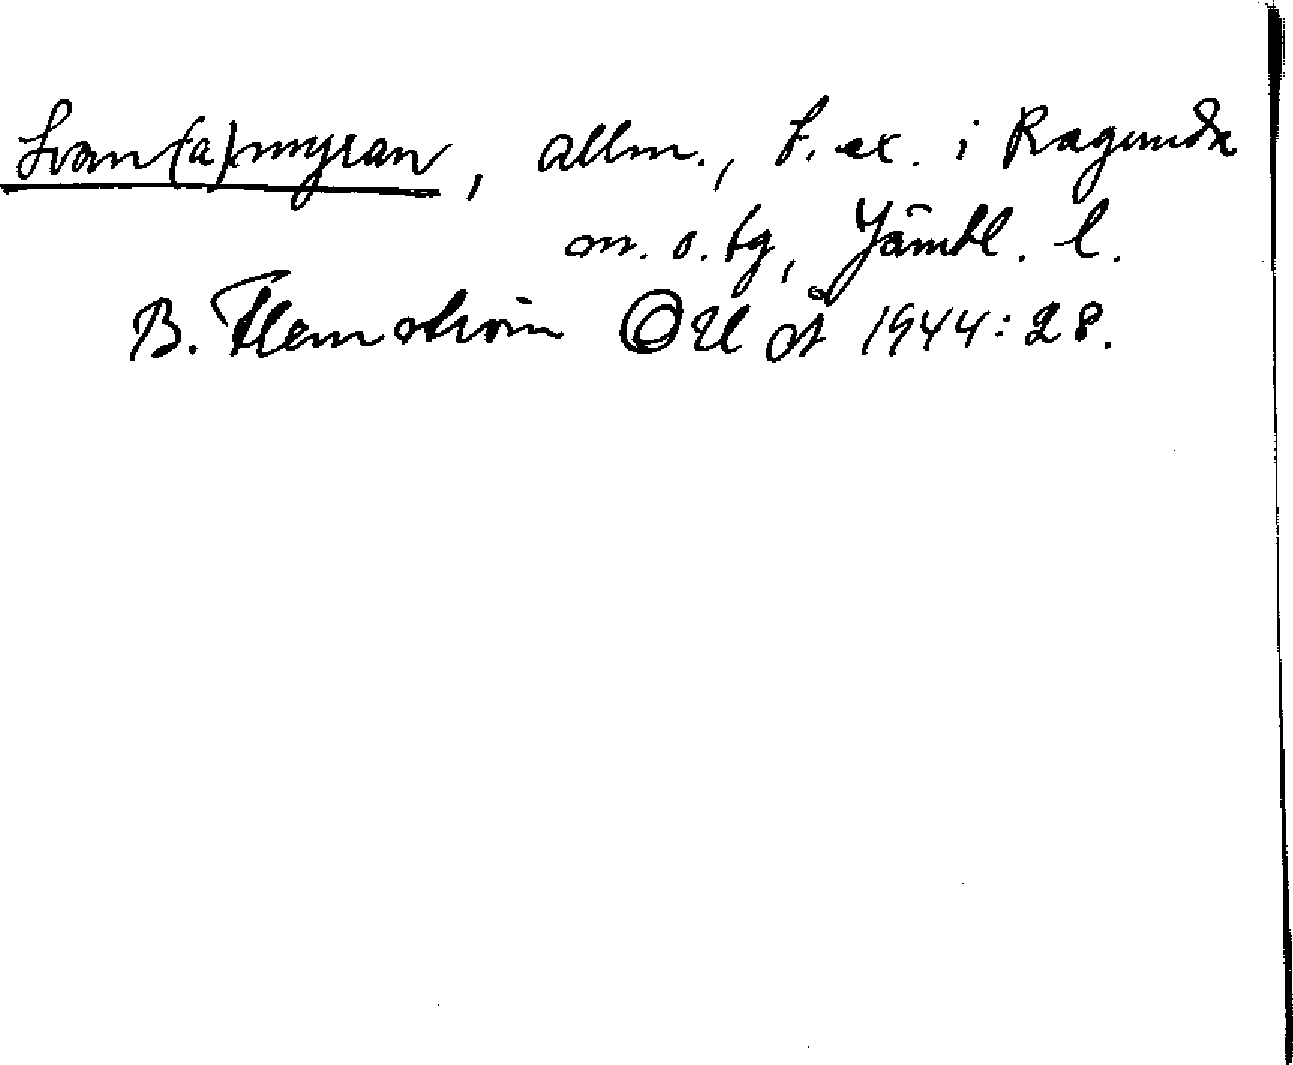 Svan(a)myran, allm., t. ex. i Ragunda
sn. o. tg, Jämtl. l.
B. Flemström OUÅ 1944:28.